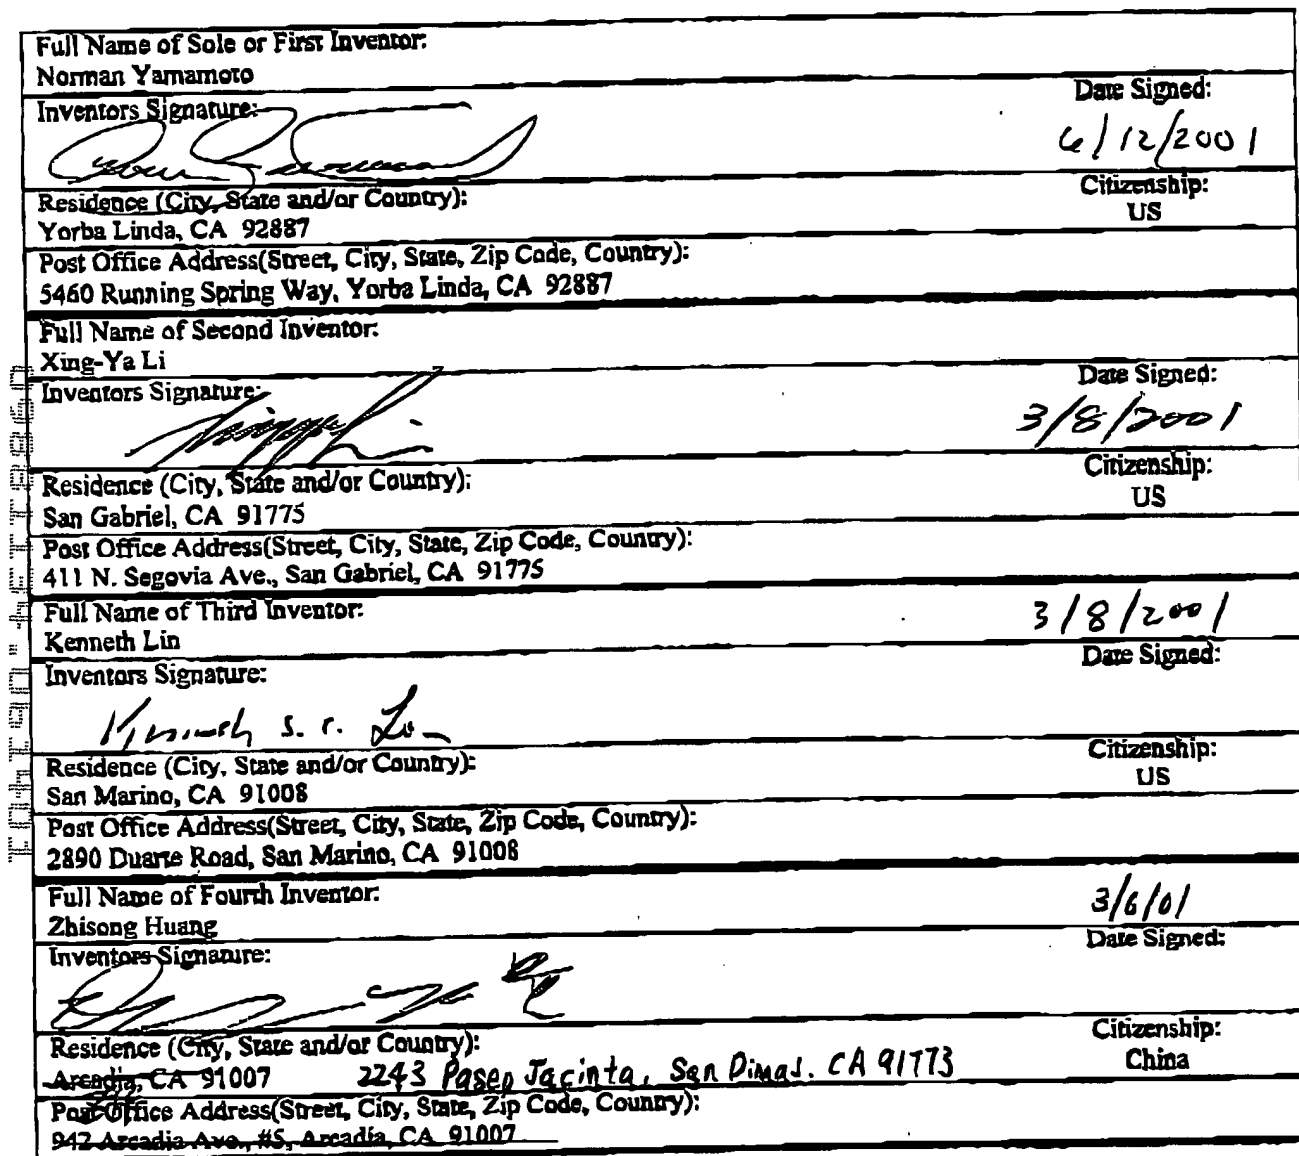 Full Name of Sole or First Inventor:
Norman Yamamoto
Inventors Signature:
Date Signed:
6/12/2001
Residence (City, State and/or Country):
Yorba Linda, CA 92887
Citizenship:
US
Post Office Address(Street, City, State, Zip Code, Country):
5460 Running Spring Way, Yorba Linda, CA 92887
Full Name of Second Inventor:
Xing-Ya Li
Inventors Signature:
Date Signed:
3/8/2001
Residence (City, State and/or Country):
San Gabriel, CA 91775
Citizenship:
US
Post Office Address(Street, City, State, Zip Code, Country):
411 N. Segovia Ave., San Gabriel, CA 91775
Full Name of Third Inventor:
Kenneth Lin
3/8/2001
Date Signed:
Inventors Signature:
Kenneth S. C. Lin
Residence (City, State and/or Country):
San Marino, CA 91008
Citizenship:
US
Post Office Address(Street, City, State, Zip Code, Country):
2890 Duarte Road, San Marino, CA 91008
Full Name of Fourth Inventor:
Zhisong Huang
3/6/01
Date Signed:
Inventors Signature:
Residence (City, State and/or Country):
Arcadia, CA 91007 2243 Paseo Jacinta, San Dimas. CA 91773
Citizenship:
China
Post Office Address(Street, City, State, Zip Code, Country):
942 Arcadia Ave., #5, Arcadia, CA 91007